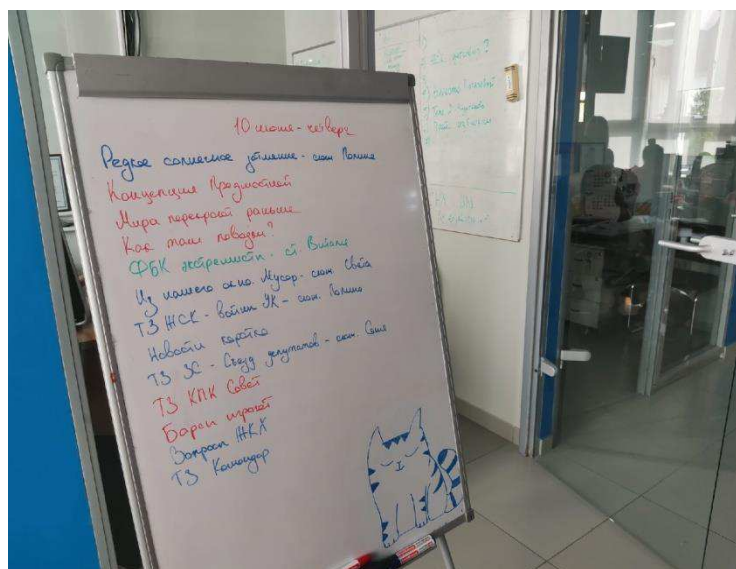 10 июня - четверг
Редкое солнечное затмение - сюж. Полина
Концепция Предмостной
Мира перекроют раньше
Как там паводок?
ФБК экстремисты - ст. Виталя
Из нашего окна. Мусор - сюж. Света
ТЗ ЖСК - войны УК - сюж. Полина
Новости коротко
ТЗ ЗС - Съезд депутатов - сюж. Саша
ТЗ КПК Совет
Барсы играют
Вопросы ЖКХ
ТЗ Командор